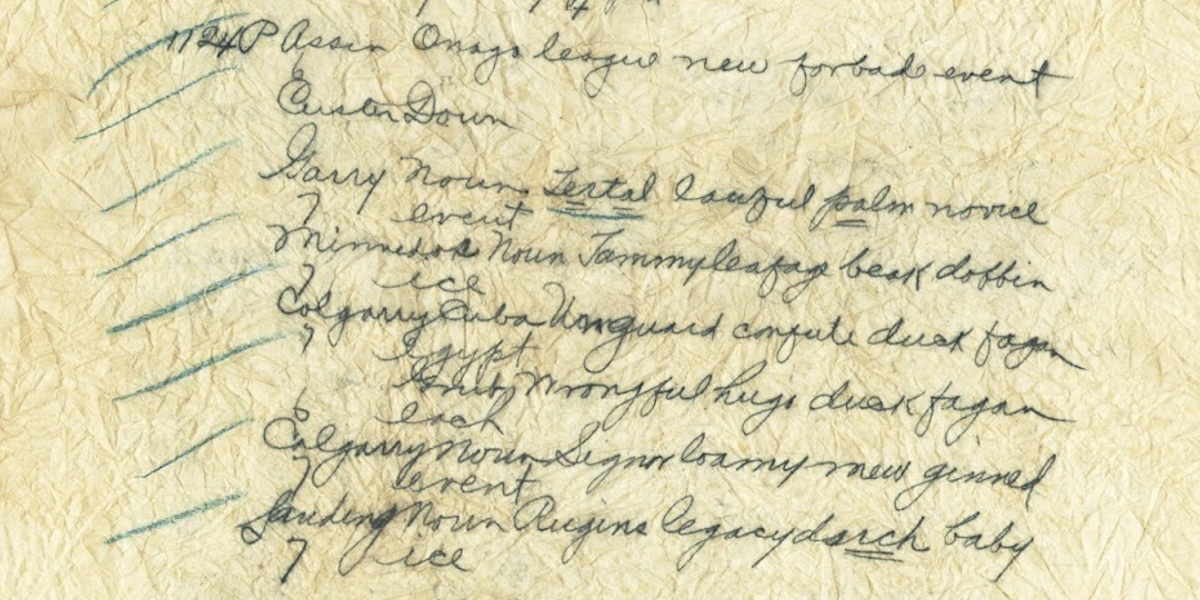 1124 P Assin Onago league new forbade event
Custer Down
Garry Noun Tertal lawful palm novice
7 event
Minnedos Noun Jammyleafage beak dobbin
7 ice
Calgarry Cuba Unguard confute duck fagan
7 Egypt
Wrongful hugo duck fagan
each
Calgarry Noun Signor loamy mew ginned
7 event
Landing Noun Rugins legacy duarch baby
7 ice